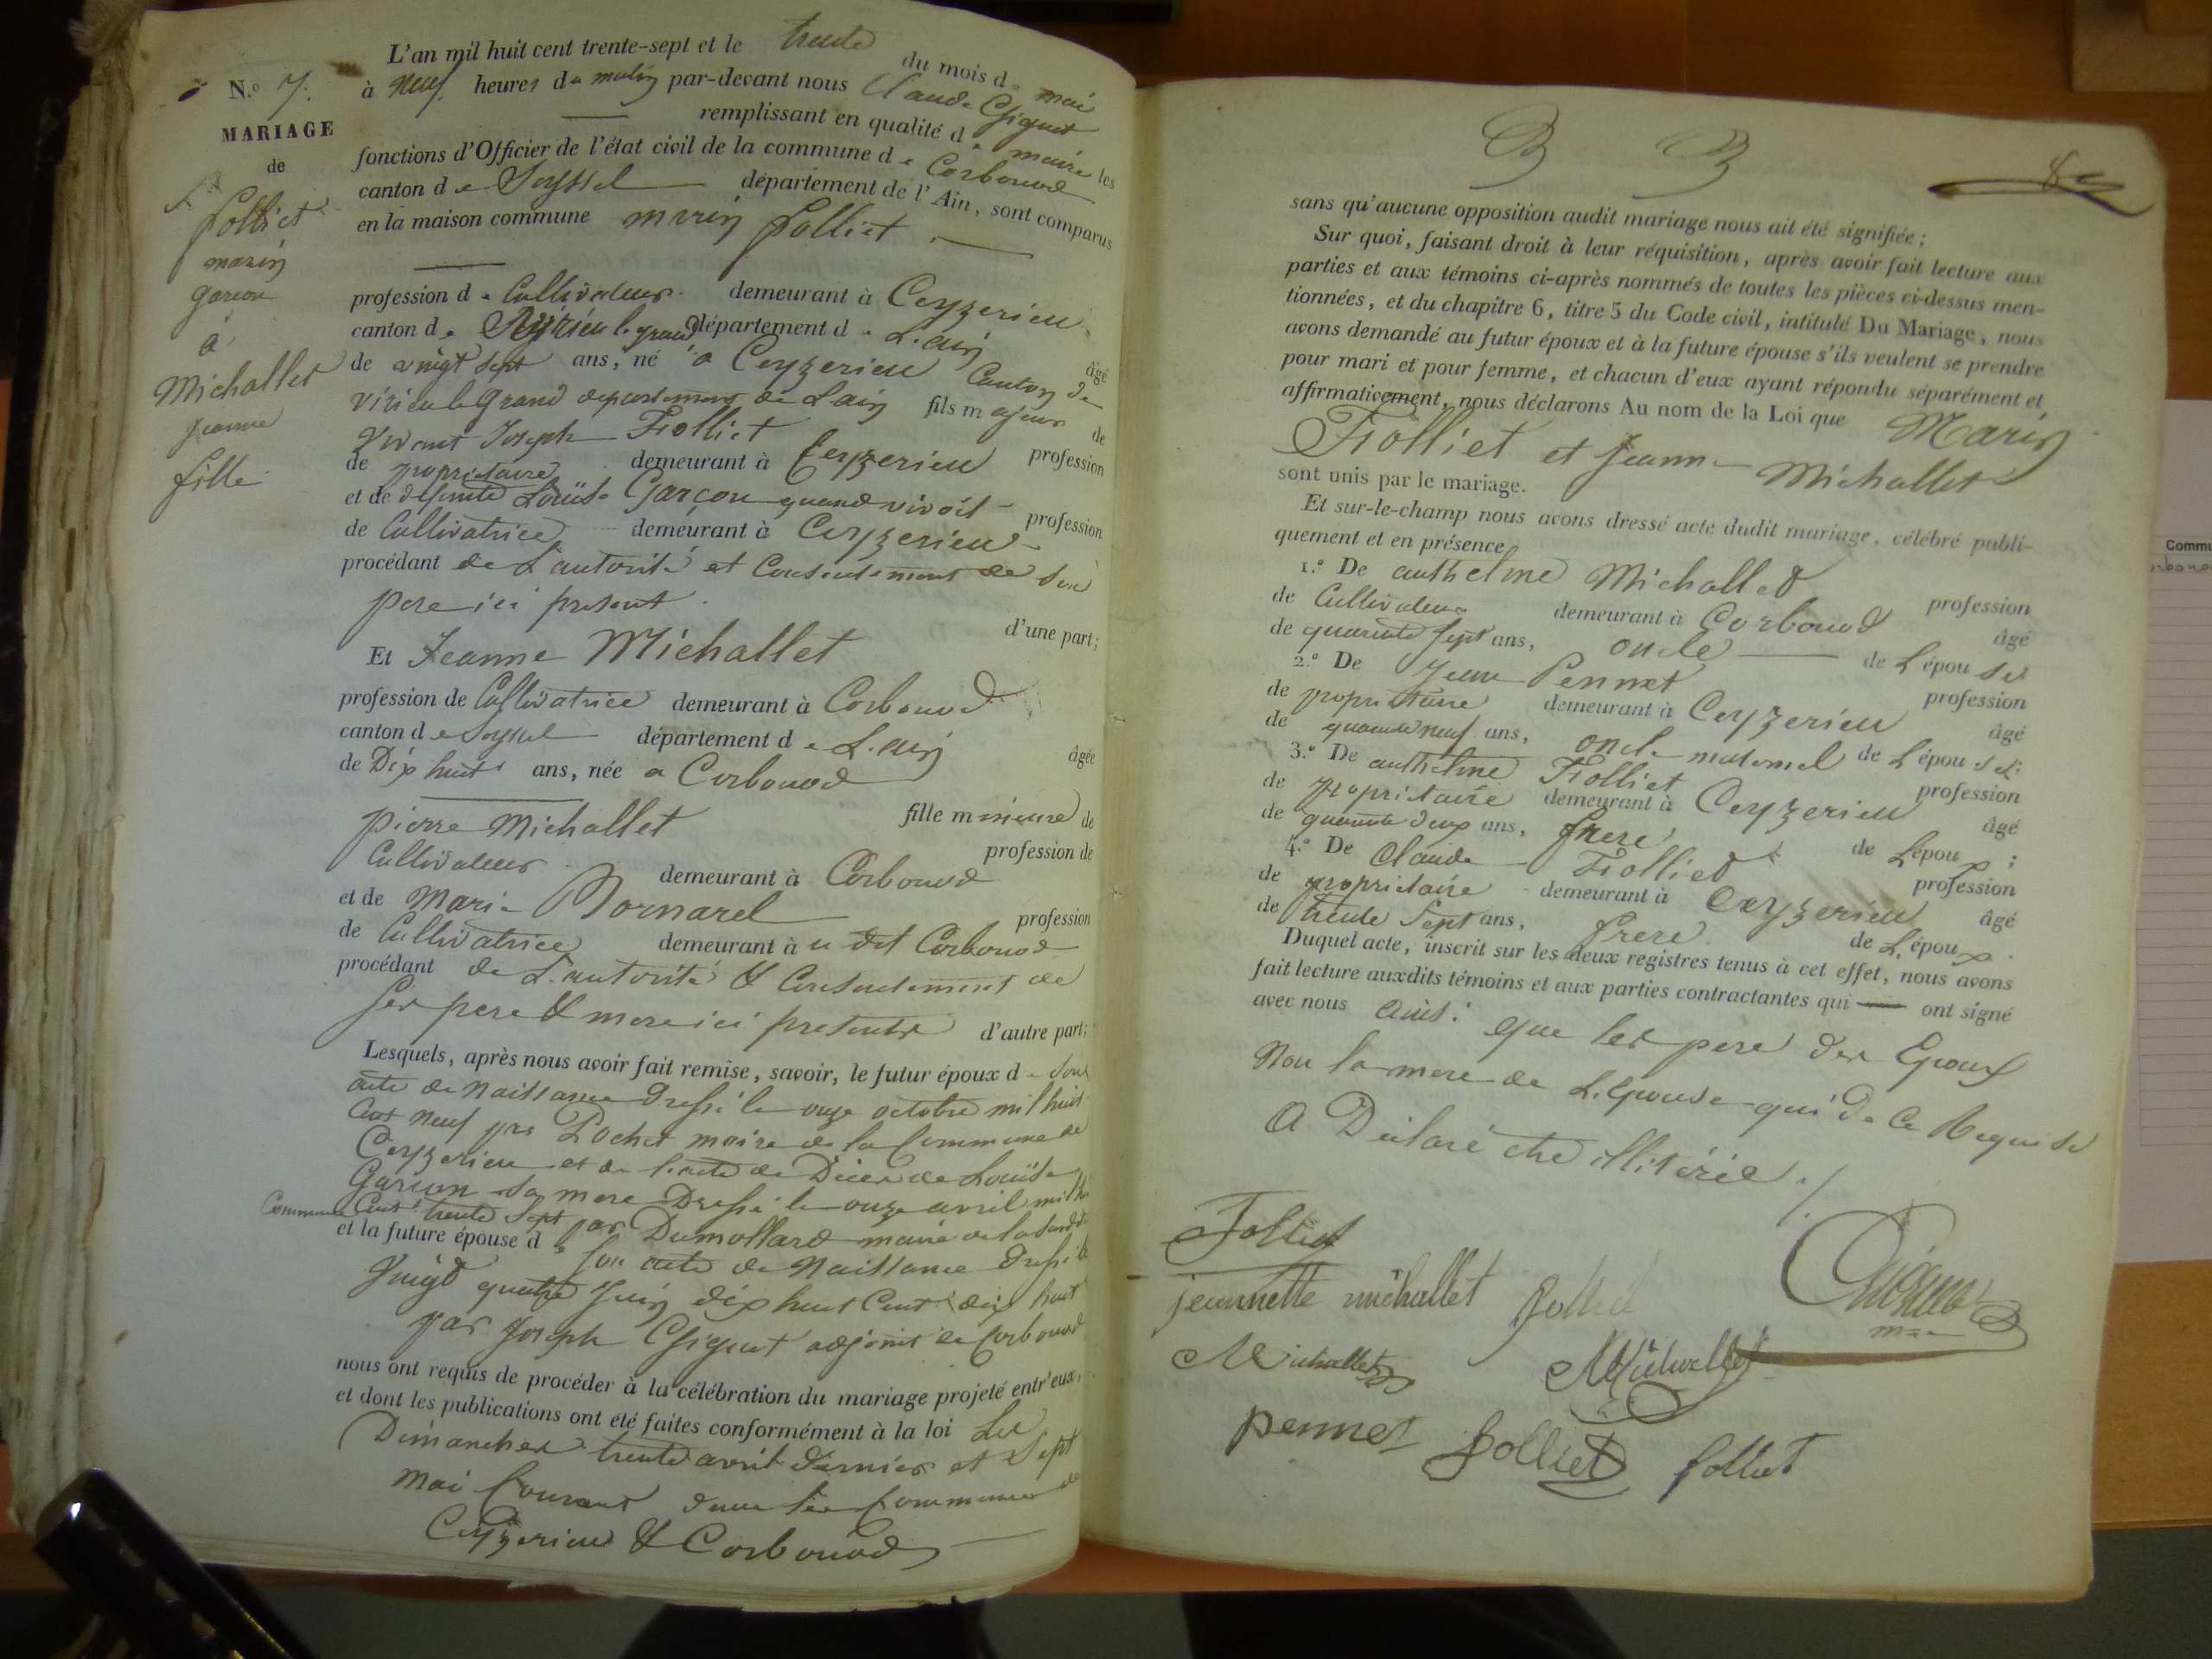 L'an mil huit cent trente-sept et le trente du mois de mai
à neuf heures du matin par-devant nous Claude Chiquet
remplissant en qualité de maire les
fonctions d'Officier de l'état civil de la commune de Corbonod
canton de Seyssel département de l'Ain, sont comparus
en la maison commune marin folliet
N.o 7.
MARIAGE
de
folliet
marin
garcon
à
Michallet
jeanne
fille
profession de Cultivateur demeurant à Ceyzerieu
canton de Virieu le grand département de L'ain âgé
de vingt sept ans, né a Ceyzerieu Canton de
virieu le Grand departement de Lain fils majeur de
vivant Joseph Folliet profession
de propriétaire demeurant à Ceyzerieu
et de defunte Louise Garçon quand vivoit profession
de Cultivatrice demeurant à Ceyzerieu
procédant de L'autorité et Consentement de son
pere ici present d'une part;
Et Jeanne Michallet
profession de Cultivatrice demeurant à Corbonod
canton de Seyssel département de L'ain âgée
de Dix huit ans, née a Corbonod
fille mineure de
pierre Michallet profession de
Cultivateur demeurant à Corbonod
et de Marie Bornarel profession
de Cultivatrice demeurant à u dit Corbonod
procédant de L'autorité & Consentement de
ses pere & mere ici presents d'autre part;
Lesquels, après nous avoir fait remise, savoir, le futur époux de son
acte de naissance dressé le onze octobre mil huit
cent neuf par Lochet maire de la Commune de
Ceyzerieu et de l'acte de Décès de Louise
Garçon sa mere Dressé le onze avril mil
Cent trente sept par Dumollard maire de la
Commune
et la future épouse de son acte de Naissance dressé le
vingt quatre Juin dix huit Cent dix huit
par Joseph Chiquet adjoint de Corbonod
nous ont requis de procéder à la célébration du mariage projeté entr'eux,
et dont les publications ont été faites conformément à la loi Les
Dimanches trente avril dernier et Sept
Mai Courant dans les Communes de
Ceyzerieu & Corbonod
sans qu'aucune opposition audit mariage nous ait été signifiée;
Sur quoi, faisant droit à leur réquisition, après avoir fait lecture aux
parties et aux témoins ci-après nommés de toutes les pièces ci-dessus men-
tionnées, et du chapitre 6, titre 5 du Code civil, intitulé Du Mariage, nous
avons demandé au futur époux et à la future épouse s'ils veulent se prendre
pour mari et pour femme, et chacun d'eux ayant répondu séparément et
affirmativement, nous déclarons Au nom de la Loi que Marin
Folliet et Jeanne Michallet
sont unis par le mariage.
Et sur-le-champ nous avons dressé acte dudit mariage, célébré publi-
quement et en présence
1.o De anthelme Michallet profession
de Cultivateur demeurant à Corbonod âgé
de quarente sept ans, oncle de L'épouse
2.o De Jean Pennet profession
de propriétaire demeurant à Ceyzerieu âgé
de quarente neuf ans, oncle maternel de L'épou
3.o De anthelme Folliet profession
de propriétaire demeurant à Ceyzerieu âgé
de quarente deux ans, frere de L'époux;
4.o De Claude Folliet profession
de propriétaire demeurant à Ceyzerieu âgé
de trente Sept ans, frere de L'époux.
Duquel acte, inscrit sur les deux registres tenus à cet effet, nous avons
fait lecture auxdits témoins et aux parties contractantes qui ont signé
avec nous ainsi que les pere des Epoux
Non la mere de L'Epouse qui de Ce Requise
A Déclaré etre illitérée ./
Folliet
jeannette michallet
Michallet Michallet
pennet folliet folliet
Commu